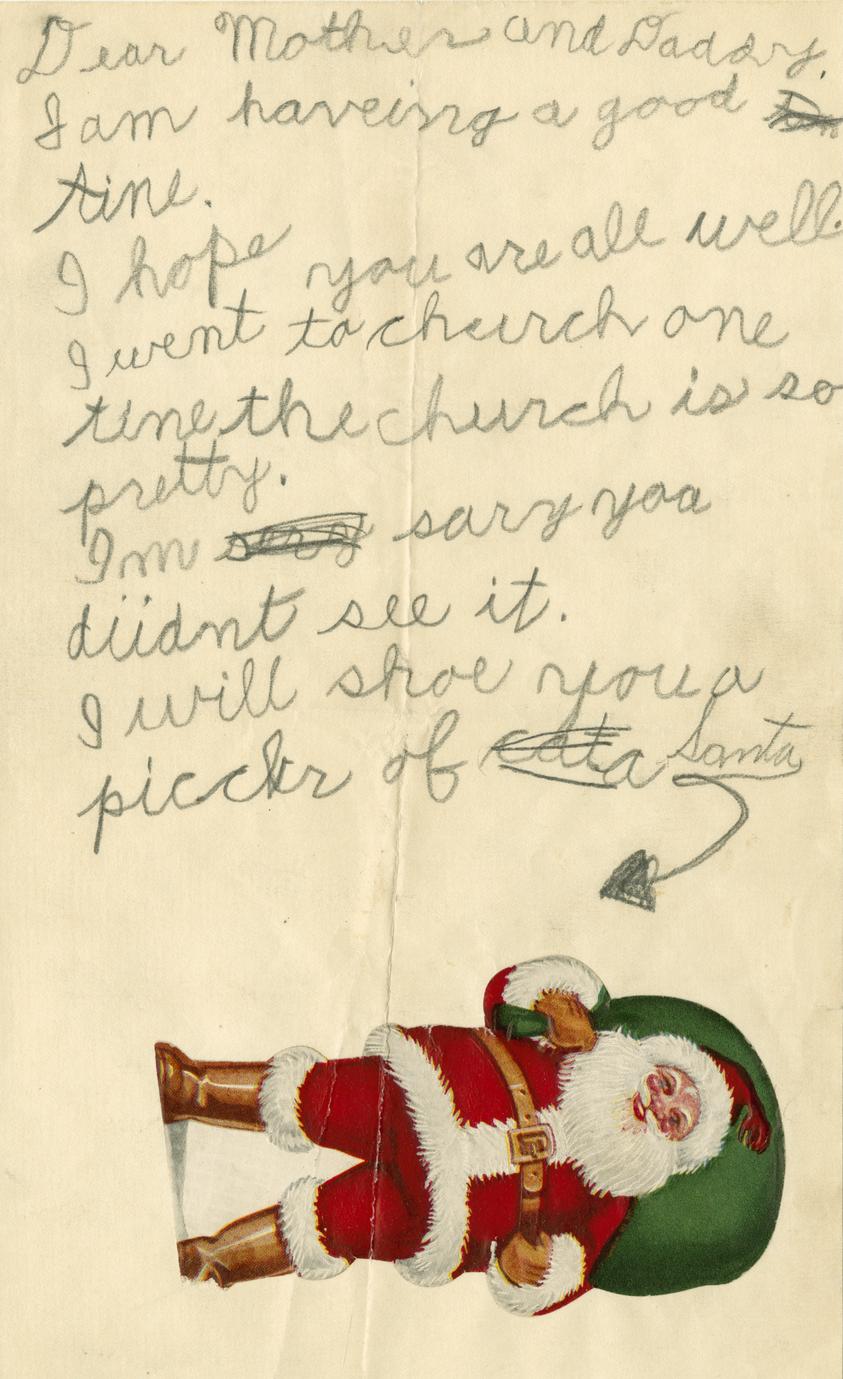 Dear Mother and Daddy,
I am haveing a good
tine.
I hope you are all well.
I went to church one
tine, the church is so
pretty.
Im sory you
diidnt see it.
I will shoe you a
picckr of Santa